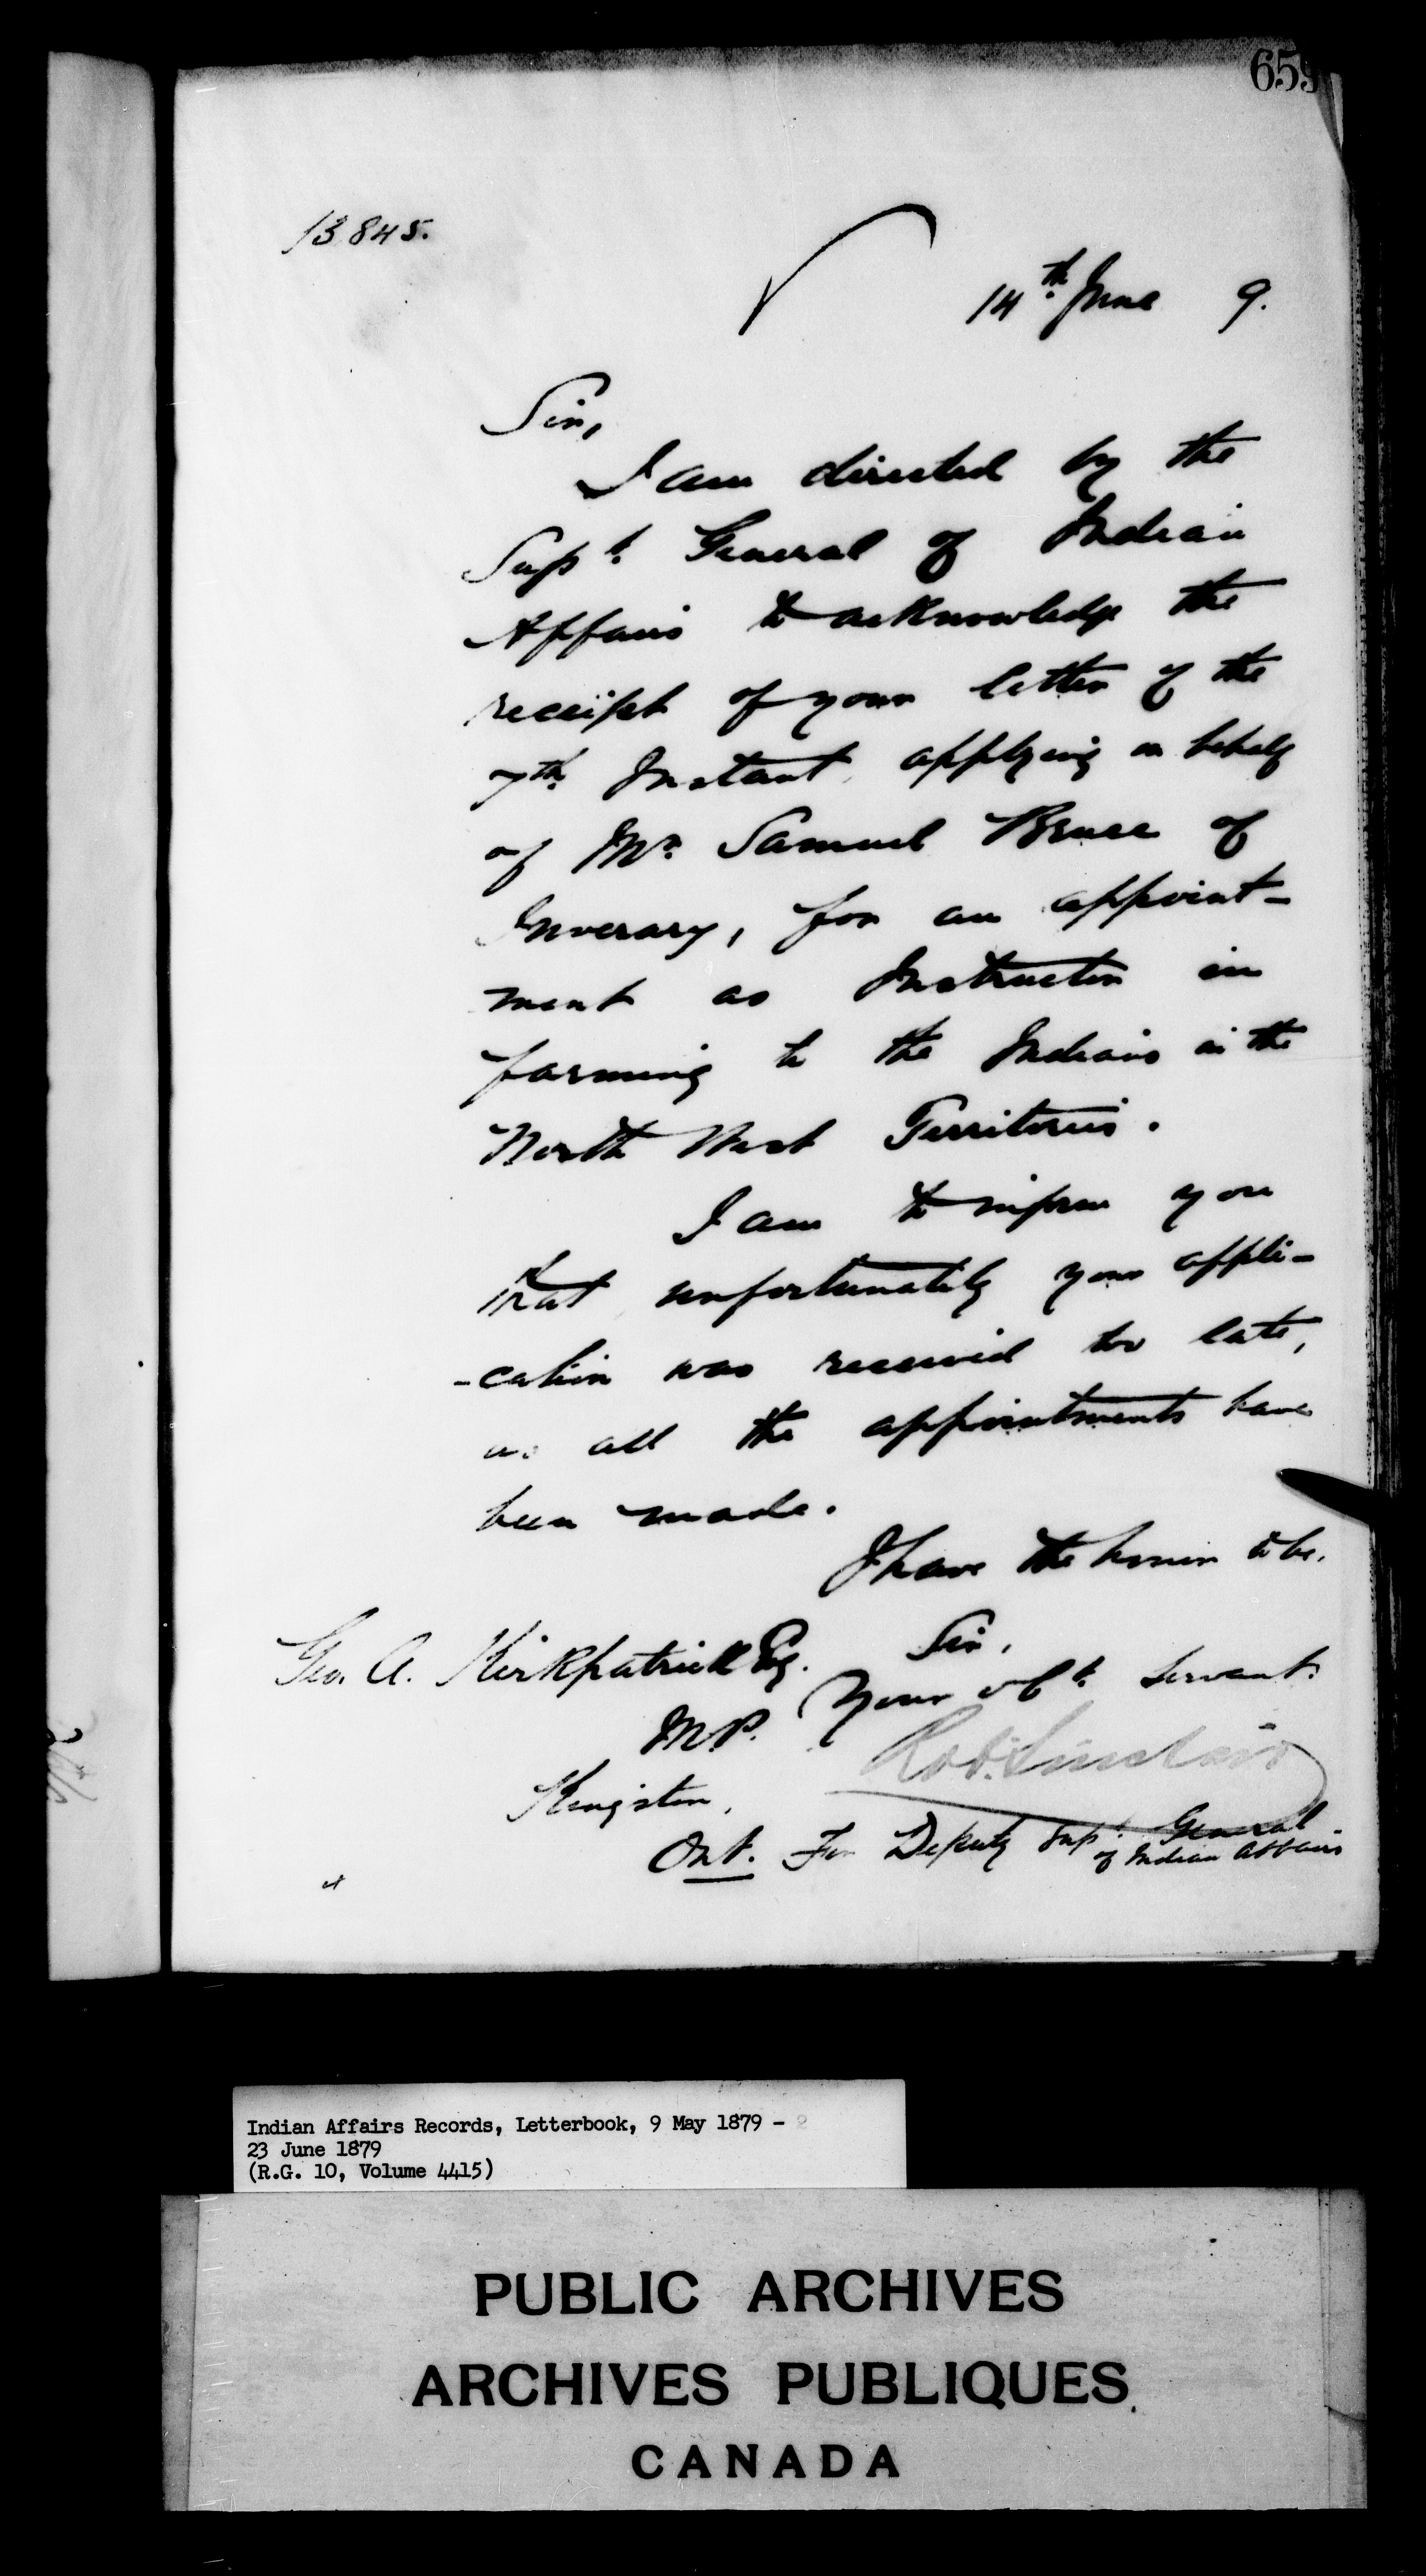 659
13845.
14th June 9.
Sir,
I am directed by the
Supt. General of Indian
Affairs to acknowledge the
receipt of your letter of the
7th. Instant applying on behalf
of Mr. Samuel Bruce of
Inverary, for an appoint-
ment as Instructor in
farming to the Indians in the
North West Territories.
I am to inform you
that unfortunately your appli-
-cation was received too late,
as all the appointments have
been made.
I have the honor to be,
Sir,
Your obt. Servant.
Geo. A. Kirkpatrick Esq.
M.P.
Kingston,
Ont.
Robt. Sinclair
For Deputy Supt. General
of Indian Affairs
Indian Affairs Records, Letterbook, 9 May 1879 - 2
23 June 1879
(R.G. 10, Volume 4415)
PUBLIC ARCHIVES
ARCHIVES PUBLIQUES
CANADA